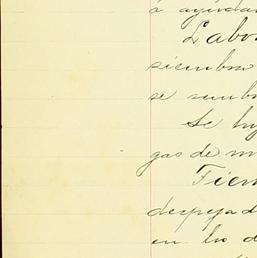 á ayudar
Labo
siembra
se sembr
Se hi
gas de m
Tiem
despejad
en los d